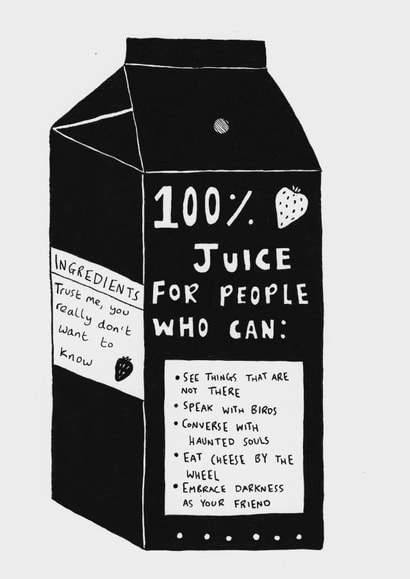 100%
JUICE
FOR PEOPLE
WHO CAN:
• SEE THINGS THAT ARE
NOT THERE
• SPEAK WITH BIRDS
• CONVERSE WITH
HAUNTED SOULS
• EAT CHEESE BY THE
WHEEL
• EMBRACE DARKNESS
AS YOUR FRIEND
INGREDIENTS
Trust me, you
really don't
want to
know